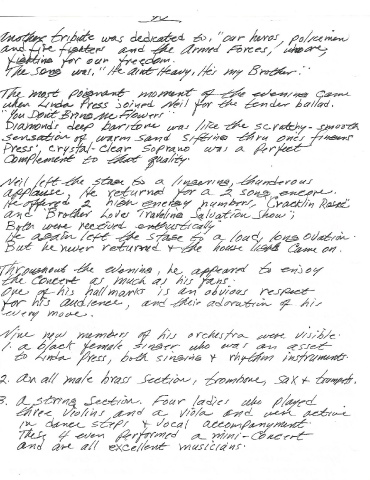 Another tribute was dedicated to, "our heros, policemen
and fire fighters and the Armed Forces, who are
fighting for our freedom.
The song was, "He Aint Heavy, It's my Brother."
The most poignant moment of the evening came
when Linda Press joined Neil for the tender ballad.
"You Don't Bring Me Flowers".
Diamonds deep baritone was like the scratchy-smooth
sensation of warm sand sifting thru one's fingers
Press', crystal-clear soprano was a perfect
complement to that quality.
Neil left the stage to a lingering, thunderous
applause, He returned for a 2 song encore.
He offered 2 high energy numbers, "Cracklin Rosie"
and "Brother Loves Traveling Salvation Show";
Both were received enthusticlly
He again left the stage to a loud, long ovation.
But he never returned & the house lights came on.
Throughout the evening, he appeared to enjoy
the concert as much as his fans.
One of his hallmarks is an obvious respect
for his audience, and their adoration of his
every move.
Nine new members of his orchestra were visible.
1. a black female singer who was an asset
to Linda Press, both singing & rhythm instruments.
2. an all male brass section, trombone, sax & trumpets.
3. a string section. Four ladies who played
three violins and a viola and were active
in dance steps & vocal accompanyment.
These 4 even performed a mini-concert
and are all excellent musicians.